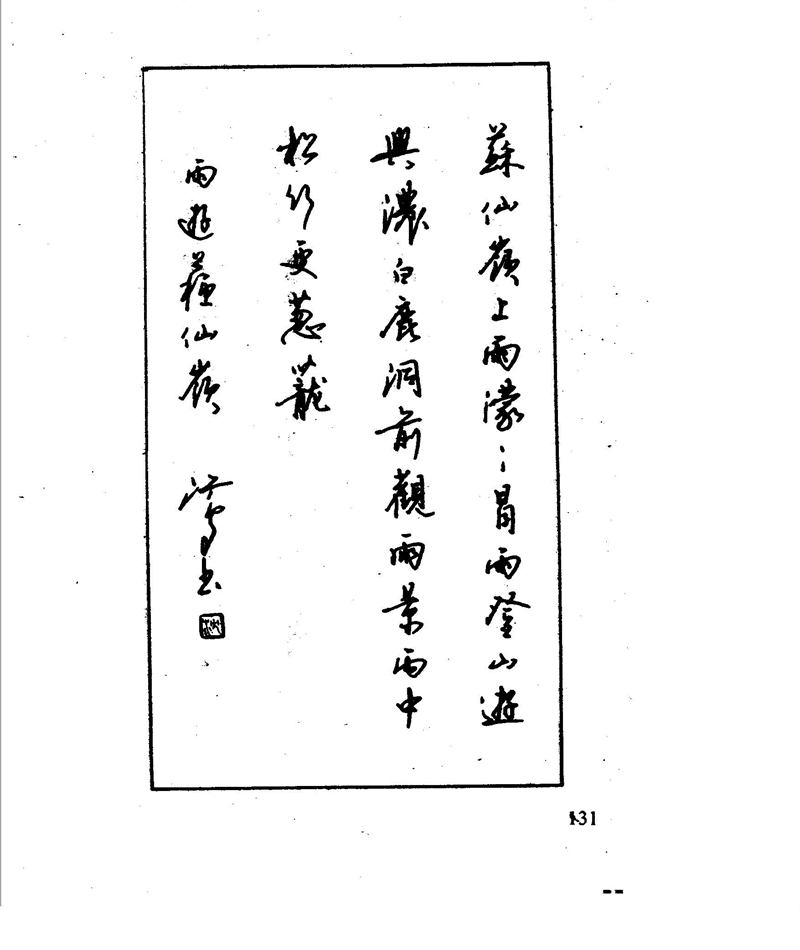 蘇仙嶺上雨濛〻冒雨登山遊
興濃白鹿洞前觀雨景雨中
松竹更蔥蘢
雨遊蘇仙嶺 書
131